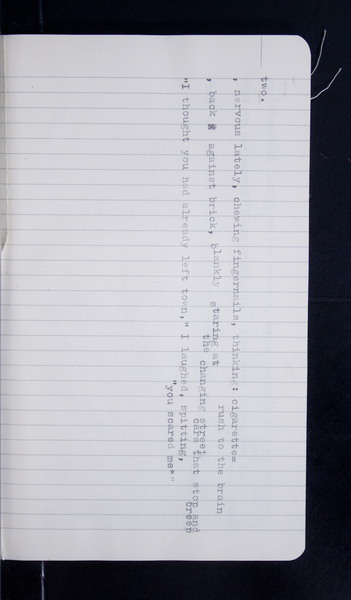 two.
, nervous lately, chewing fingernails, thinking: cigarette=
rush to the brain
, back against brick, blankly staring at
the changing street
cars that stop and
creep
"I thought you had already left town," I laughed, spitting,
"you scared me*"